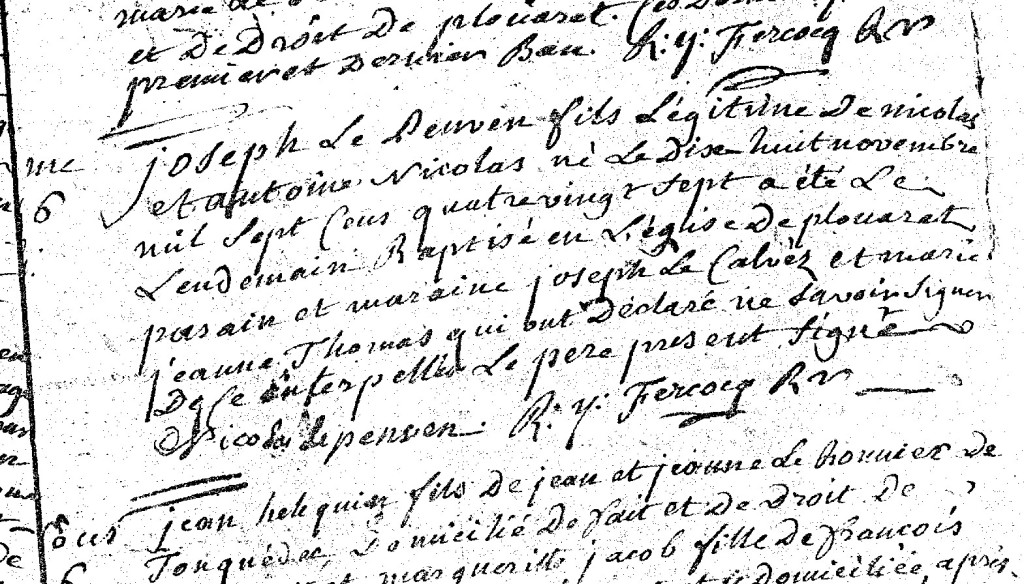 marie
et De Droit De plouaret.
premier et Dernier Ban. R: y: Fercocq Rr
joseph Le Penven fils Légitime De nicolas
me
et antoine Nicolas né Le Dix huit novembre
6
mil sept Cens quatre vingt sept a été Le
Lendemain Baptisé en L'église De plouaret
parain et maraine joseph Le Calvèz et marie
jeanne Thomas qui ont Déclaré ne Savoir Signer
De Ce interpellés Le pere present Signe
Nicolas lepenven. R: y: Fercocq Rr
jean helequin fils De jean et jeanne Le bonniec De
Tonquédec, Domicilié De fait et De Droit De
margueritte jacob fille De françois
Domiciliée, après